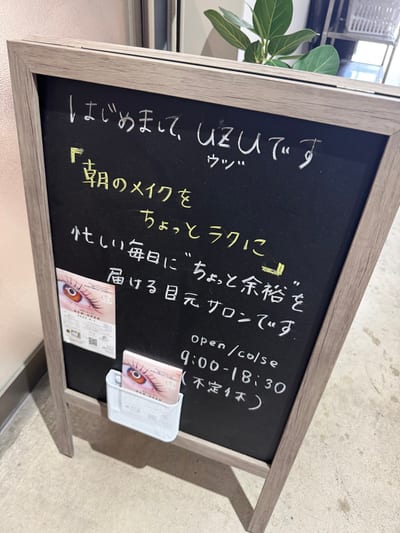 はじめまして、UZUです
ウヅ
『朝のメイクを
ちょっとラクに』
忙しい毎日に"ちょっと余裕"を
届ける目元サロンです
open/colse
9:00-18:30
(不定休)